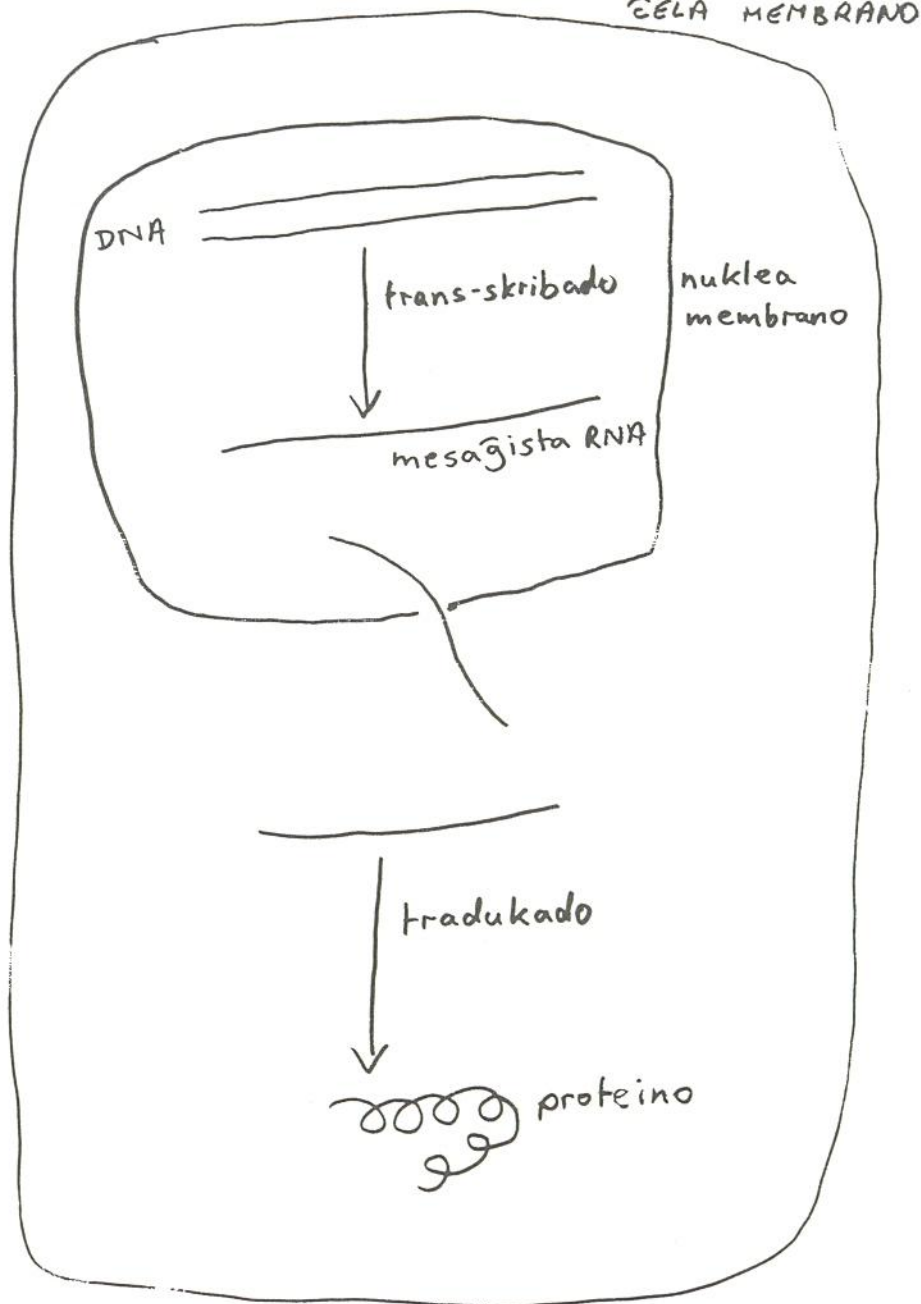 ĈELA MEMBRANO
DNA
trans-skribado
nuklea
membrano
mesaĝista RNA
tradukado
proteino